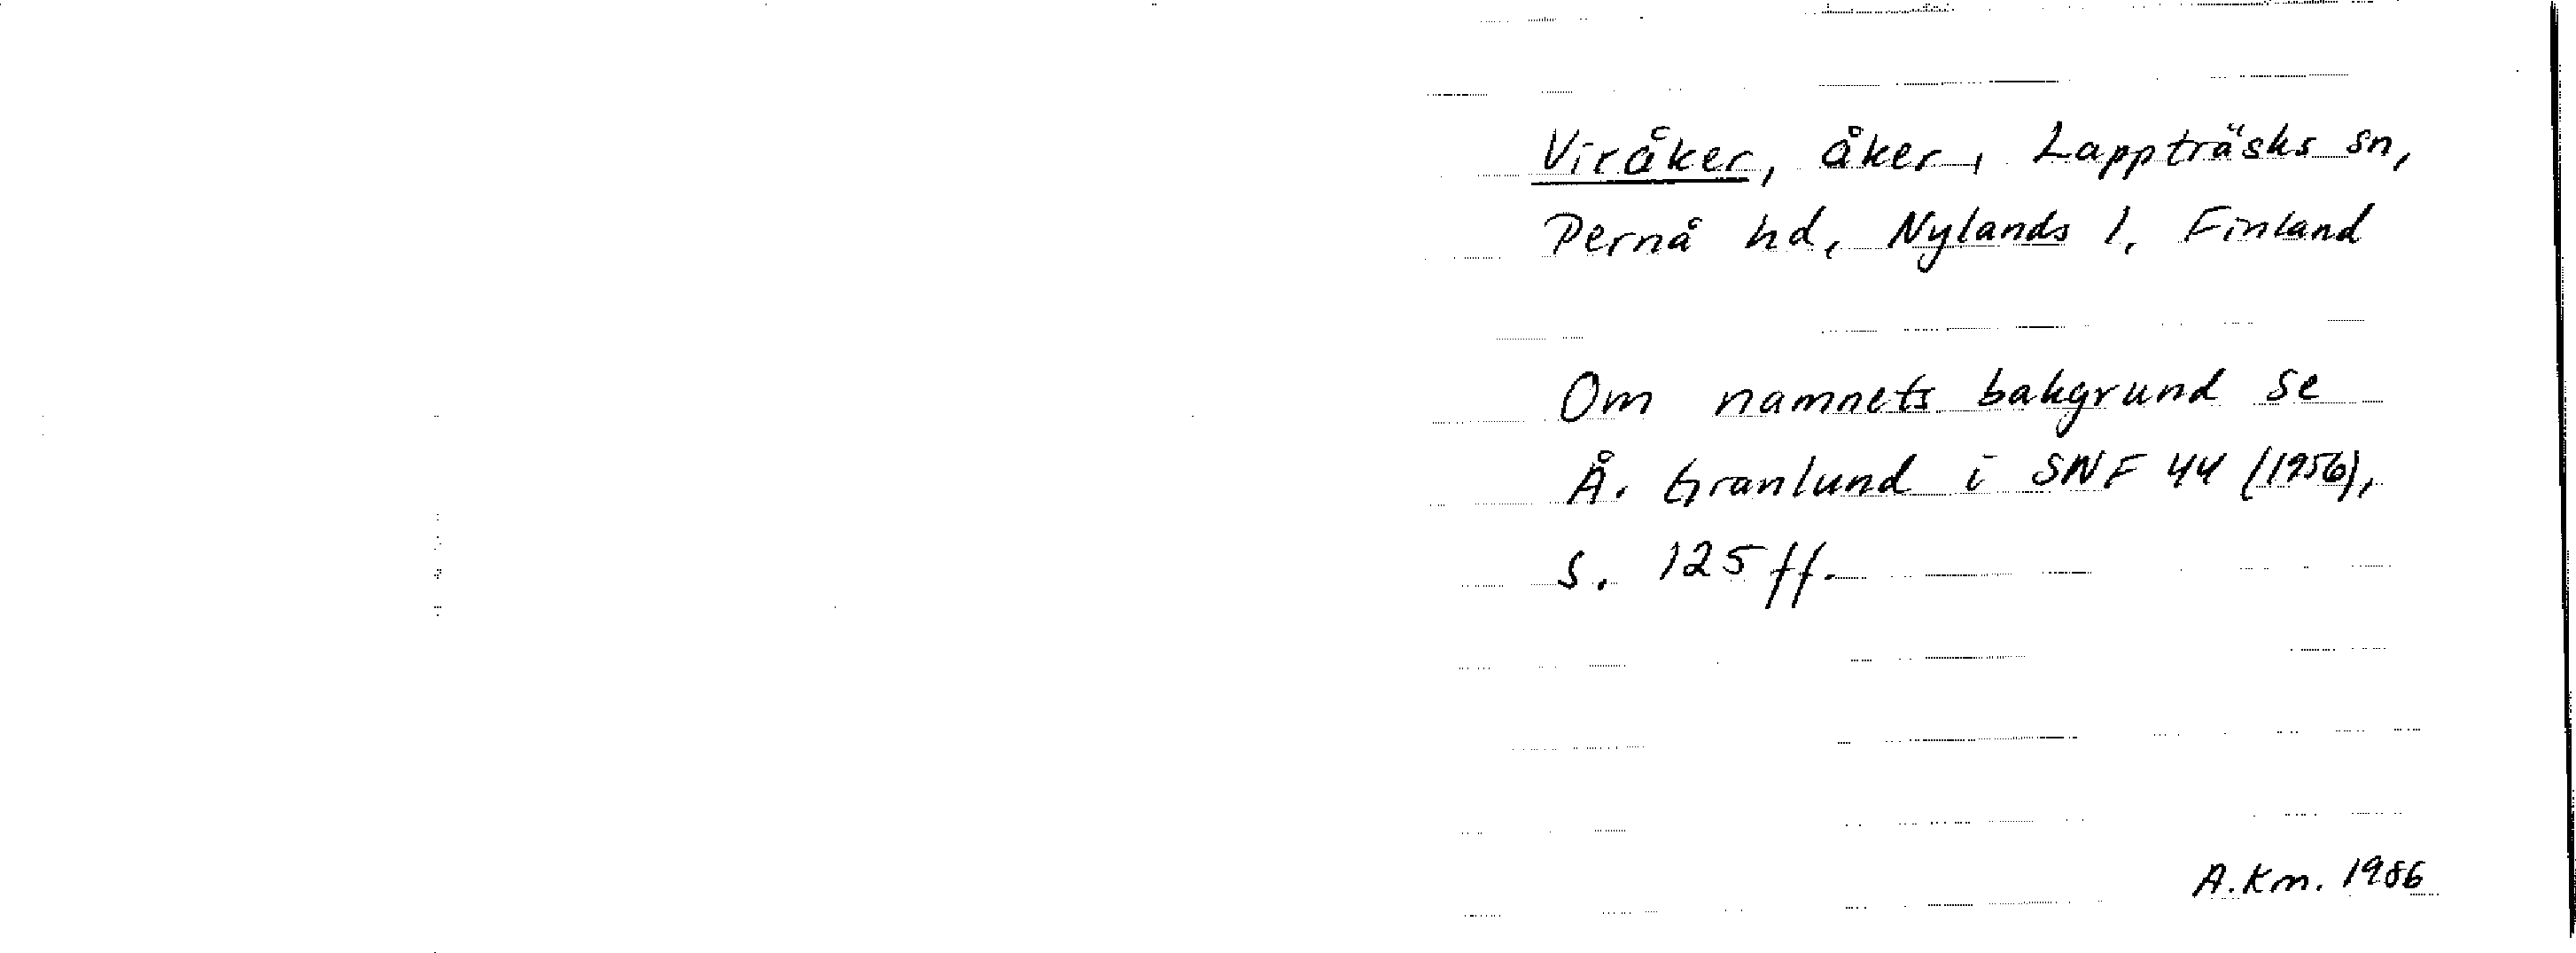 Viråker, åker, Lappträsks sn,
Pernå hd, Nylands l, Finland
Om namnets bakgrund se
Å. Granlund i SNF 44 (1956),
s. 125 ff.
A.Km. 1986